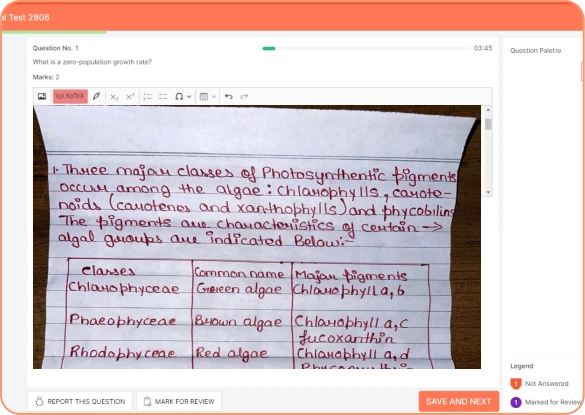 al Test 2806
Question No. 1
03:45
What is a zero-population growth rate?
Marks: 2
KaTeX
Question Palette
1. Three major classes of Photosynthentic pigments
occur among the algae : Chlorophylls, carote-
noids (carotenes and xanthophylls) and phycobilins
The pigments are characteristics of certain →
algal groups are indicated Below:-
Classes Common name Major pigments
Chlorophyceae Green algae Chlorophyll a, b
Phaeophyceae Brown algae Chlorophyll a, c
fucoxanthin
Rhodophyceae Red algae Chlorophyll a, d
Legend
1 Not Answered
1 Marked for Review
REPORT THIS QUESTION
MARK FOR REVIEW
SAVE AND NEXT